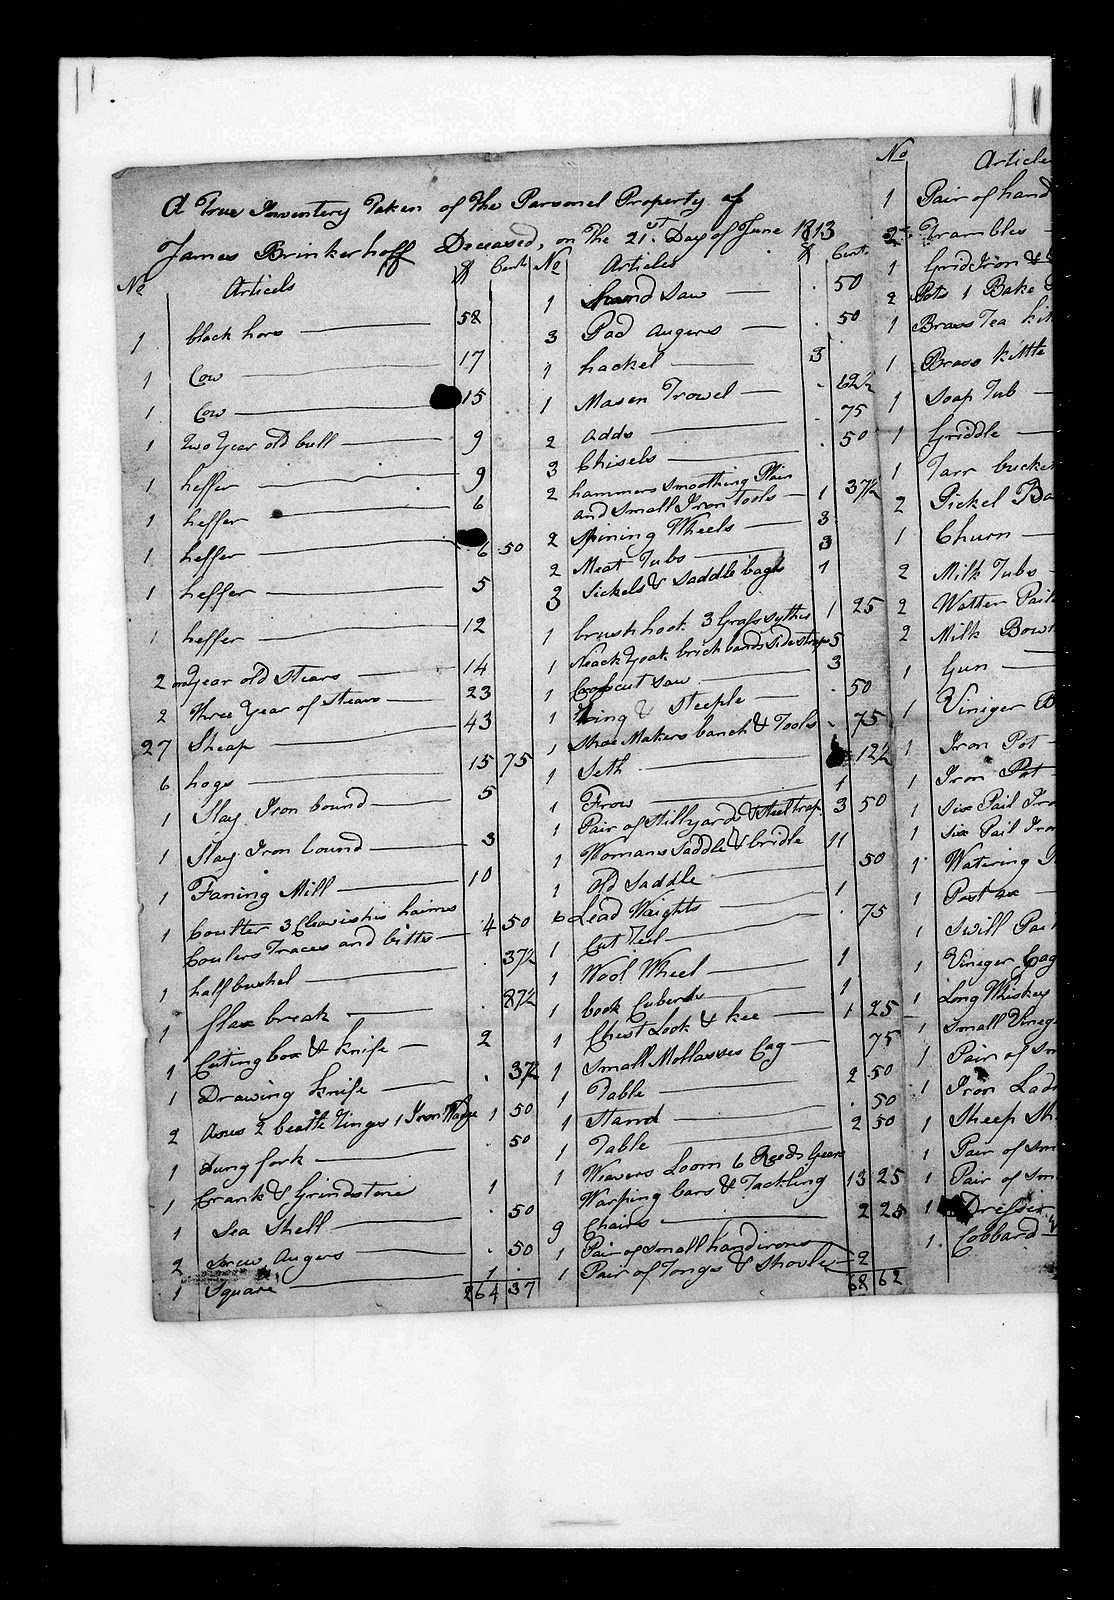 A True Inventery Taken of the Parsonel Property of
James Brinkerhoff Deceased, on The 21st Day of June 1813
No Articels $ Cent
1 black hors 58
1 Cow 17
1 Cow 15
1 two Year old bull 9
1 heffer 9
1 heffer 6
1 heffer 6 50
1 heffer 5
1 heffer 12
2 one Year old stears 14
2 three Year of stears 23
27 Sheap 43
6 hogs 15 75
1 Slay Iron bound 5
1 Slay Iron bound 3
1 Faning Mill 10
1 Coulter 3 Cleavishis haims
Coulers Traces and bitts 4 50
1 half bushel 37½
1 flax break 87½
1 Cuting box & knife 2
1 Drawing knife 37½
2 Axes 2 beatle Rings 1 Iron Wadge 1 50
1 dung fork 50
1 Crank & Grindstone 1
1 Sea Shell 50
2 Screw Augers 50
1 Square 1
264 37
No Articles $ Cent
1 hand saw 50
3 Pad Augers 50
1 hackel 3
1 Mason Trowel 62½
2 adds 75
3 Chisels 50
2 hammers smoothing Plain
and small Iron tools 1 37½
2 Spining Wheels 3
2 Meat Tubs 3
3 Sickels & Saddle bags 1
1 brush hook 3 Grass sythes 1 25
1 Neack Yoak brick bands side straps 5
1 Crosscut saw 3
1 Ring & Steeple 50
1 Shoe Makers banch & Tools 75
1 Seth 12½
1 Frow 1
1 Pair of Stillyards & Steel trap 3 50
1 Womans Saddle & bridle 11
1 Old Saddle 50
6 Lead Waights 1
1 Cut Teel 75
1 Wool Wheel 1
1 book Cuberds 1
1 Chest Lock & kee 1 25
1 Small Mollasses Cag 75
1 Table 2 50
1 Stand 50
1 Table 2 50
1 Weavers Loom 6 Reeds Gears
Warping bars & Tackling 13 25
9 Chairs 2 25
1 Pair of small handirons
1 Pair of Tongs & Shovle 2
68 62
No Article
1 Pair of hand
2 Trambles
1 GridIron &
2 Pots 1 Bake
1 Brass Tea kit
1 Brass kittle
1 Soap Tub
1 Griddle
1 Tarr bucke
2 Pickel Ba
1 Churn
2 Milk Tubs
2 Watter Paile
2 Milk Bow
1 Gun
1 Viniger B
1 Iron Pot
1 Iron Pot
1 Six Pail Iro
1 Six Pail Iron
1 Watering
1 Post ax
1 Swill Pai
1 Vineger Cag
1 Long Whiskey
1 Small Vineg
1 Pair of sm
1 Iron Lad
1 Sheep Sh
1 Pair of sm
1 Pair of sm
1 Dressin
1 Cobbard